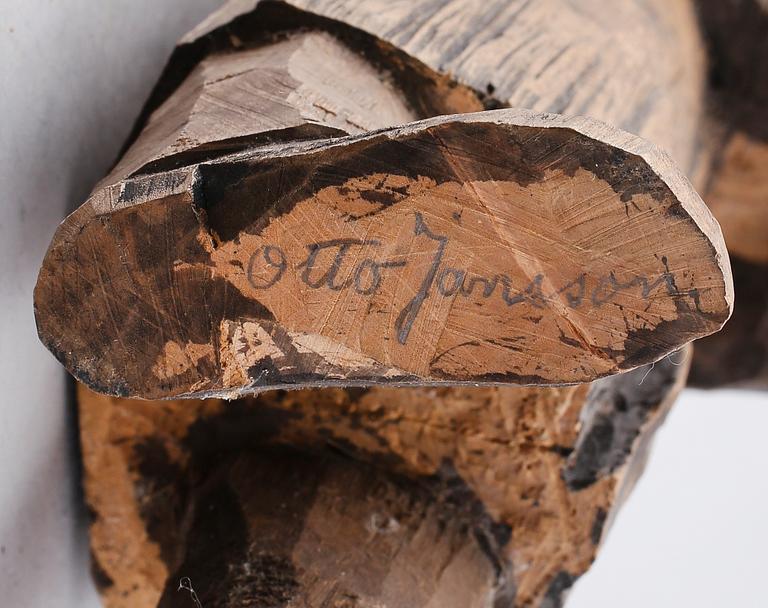 Otto Jansson